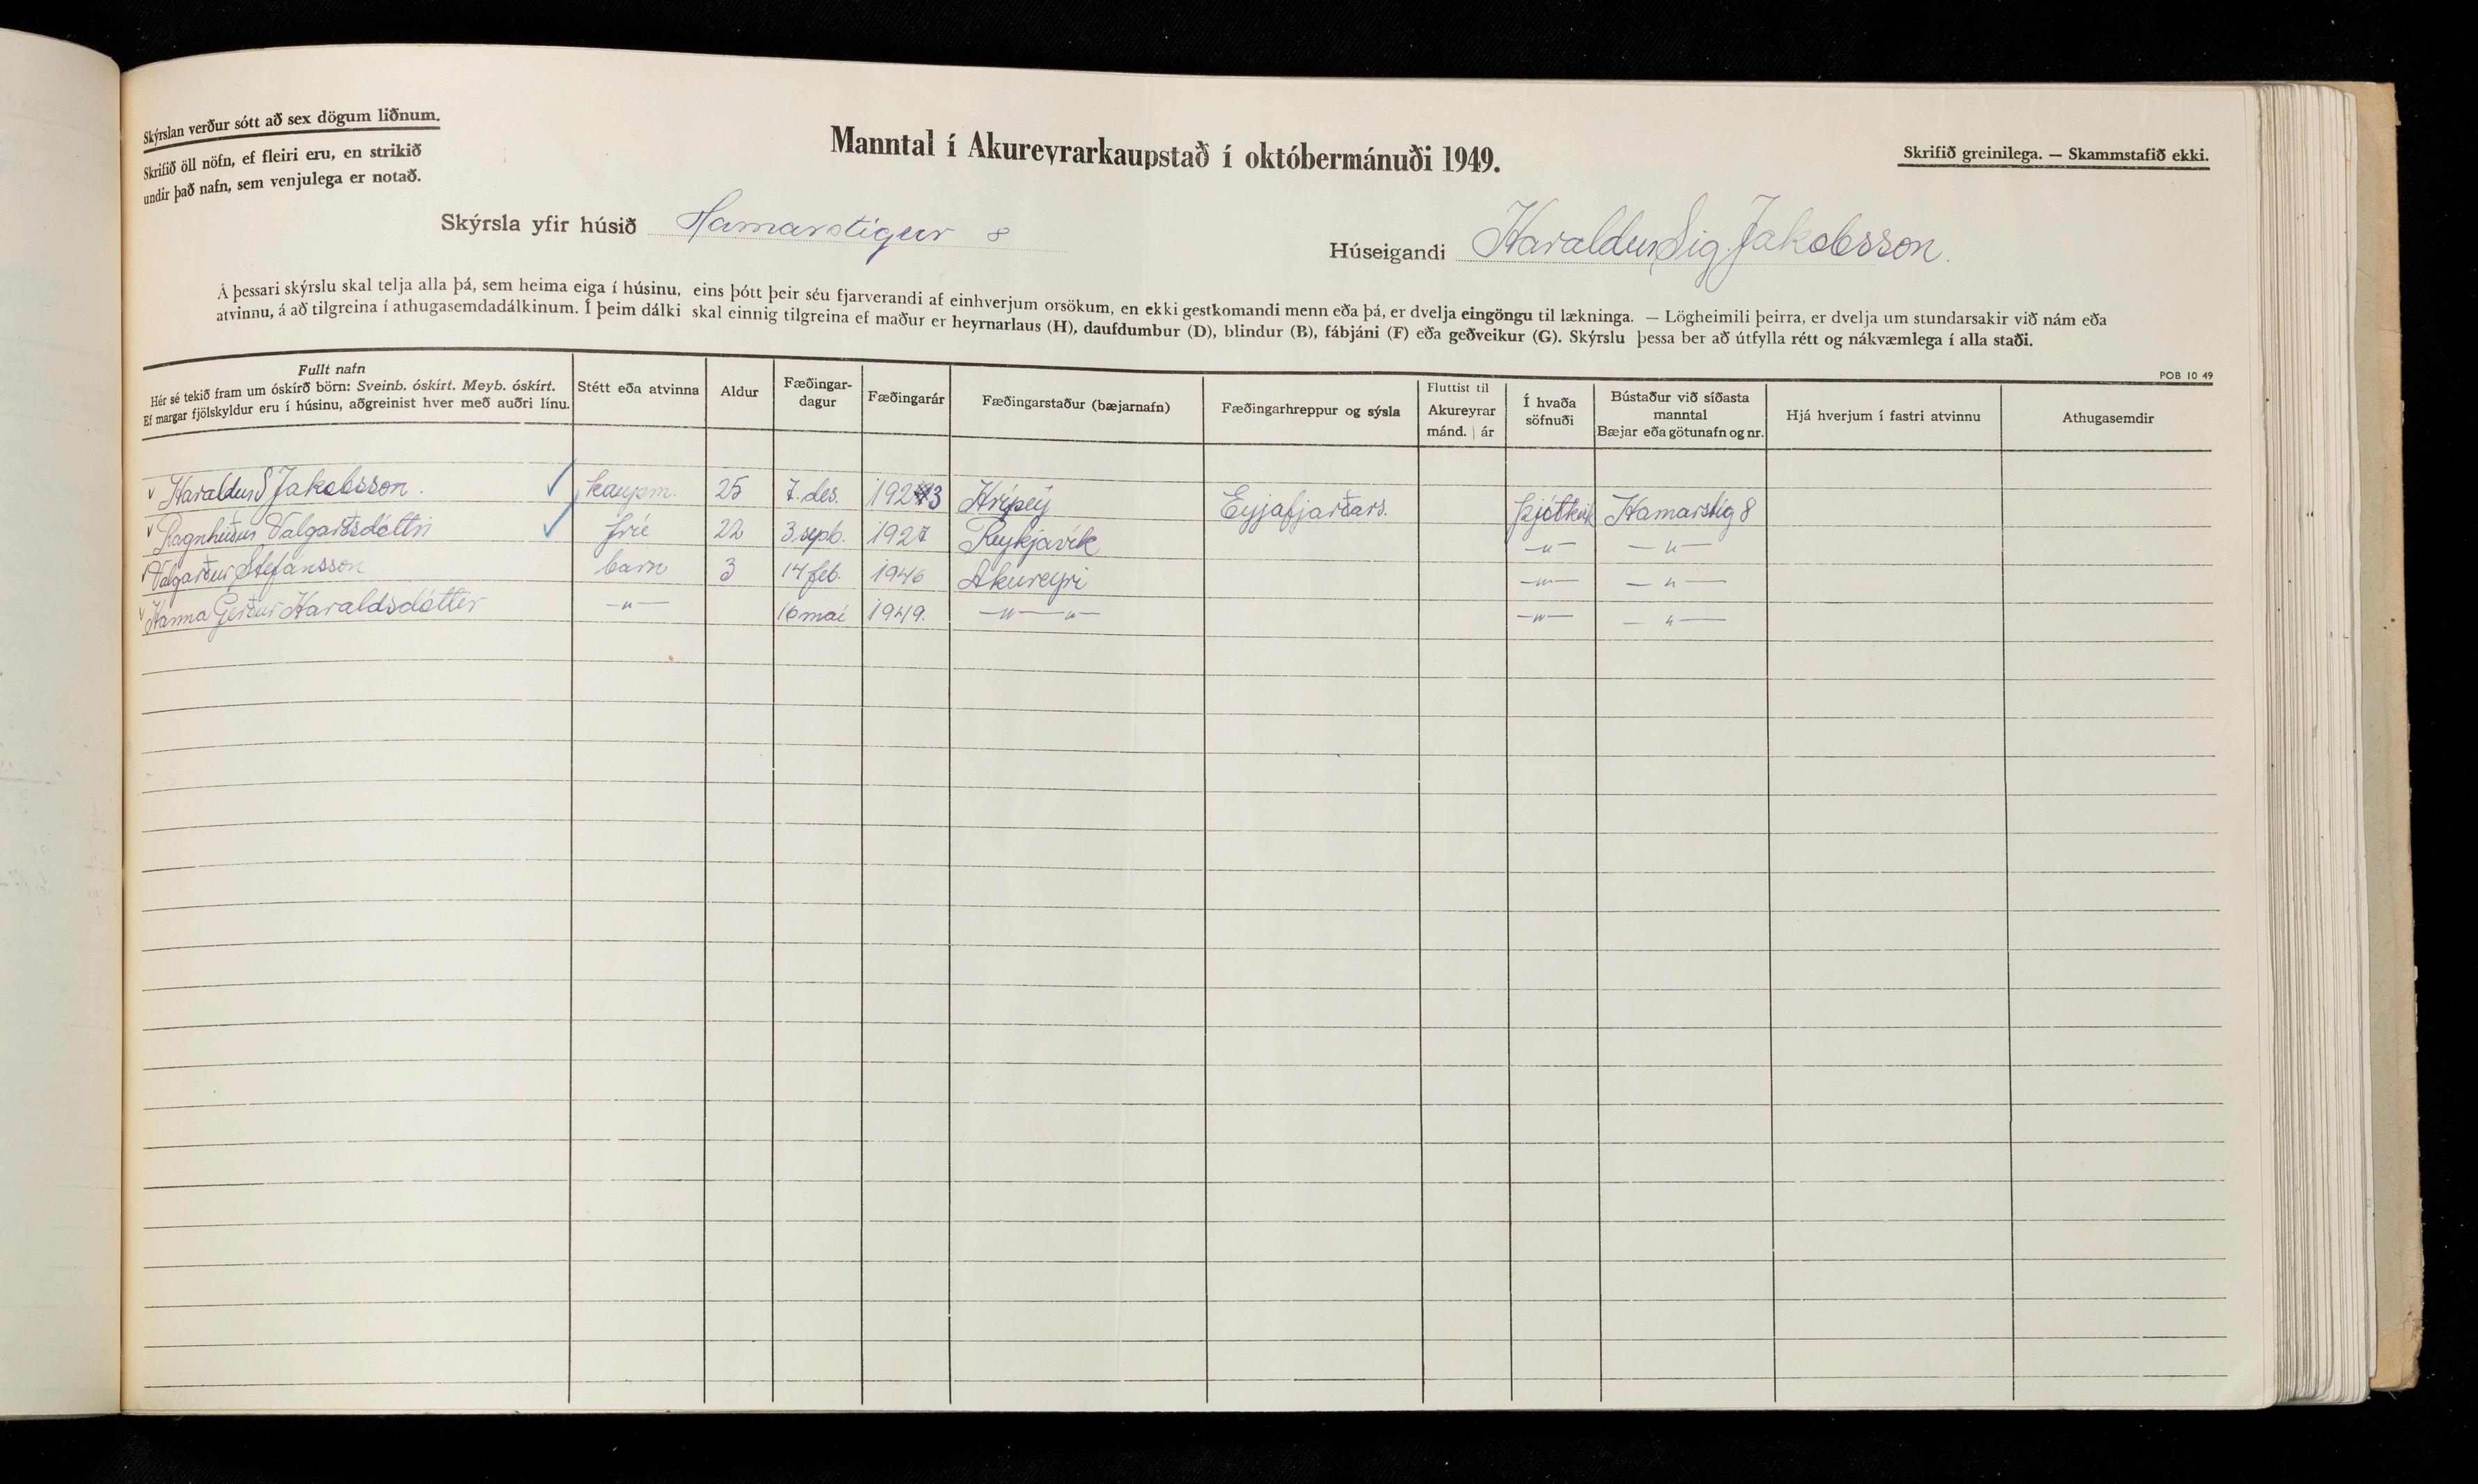 Skýrslan verður sótt að sex dögum liðnum.
Skrifið öll nöfn, ef fleiri eru, en strikið
undir það nafn, sem venjulega er notað.
Manntal í Akureyrarkaupstað í októbermánuði 1949.
Skrifið greinilega. — Skammstafið ekki.
Skýrsla yfir húsið Hamarstígur 8
Húseigandi Haraldur Sig. Jakobsson.
Á þessari skýrslu skal telja alla þá, sem heima eiga í húsinu, eins þótt þeir séu fjarverandi af einhverjum orsökum, en ekki gestkomandi menn eða þá, er dvelja eingöngu til lækninga. — Lögheimili þeirra, er dvelja um stundarsakir við nám eða
atvinnu, á að tilgreina í athugasemdadálkinum. Í þeim dálki skal einnig tilgreina ef maður er heyrnarlaus (H), daufdumbur (D), blindur (B), fábjáni (F) eða geðveikur (G). Skýrslu þessa ber að útfylla rétt og nákvæmlega í alla staði.
POB 10 49
Fullt nafn
Hér sé tekið fram um óskírð börn: Sveinb. óskírt. Meyb. óskírt.
Ef margar fjölskyldur eru í húsinu, aðgreinist hver með auðri línu.
Stétt eða atvinna
Aldur
Fæðingar-
dagur
Fæðingarár
Fæðingarstaður (bæjarnafn)
Fæðingarhreppur og sýsla
Fluttist til
Akureyrar
mánd. | ár
Í hvaða
söfnuði
Bústaður við síðasta
manntal
Bæjar eða götunafn og nr.
Hjá hverjum í fastri atvinnu
Athugasemdir
Haraldur S Jakobsson. kaupm. 25 7. des. 1923 Hrísey Eyjafjarðars. Þjóðkirk Hamarstíg 8
Ragnheiður Valgarðsdóttir frú 22 3. sept. 1927 Reykjavík —"— —"—
Valgarður Stefánsson barn 3 14 feb. 1946 Akureyri —"— —"—
Hanna Gerður Haraldsdóttir —"— 16 maí 1949. —"— "— —"— —"—